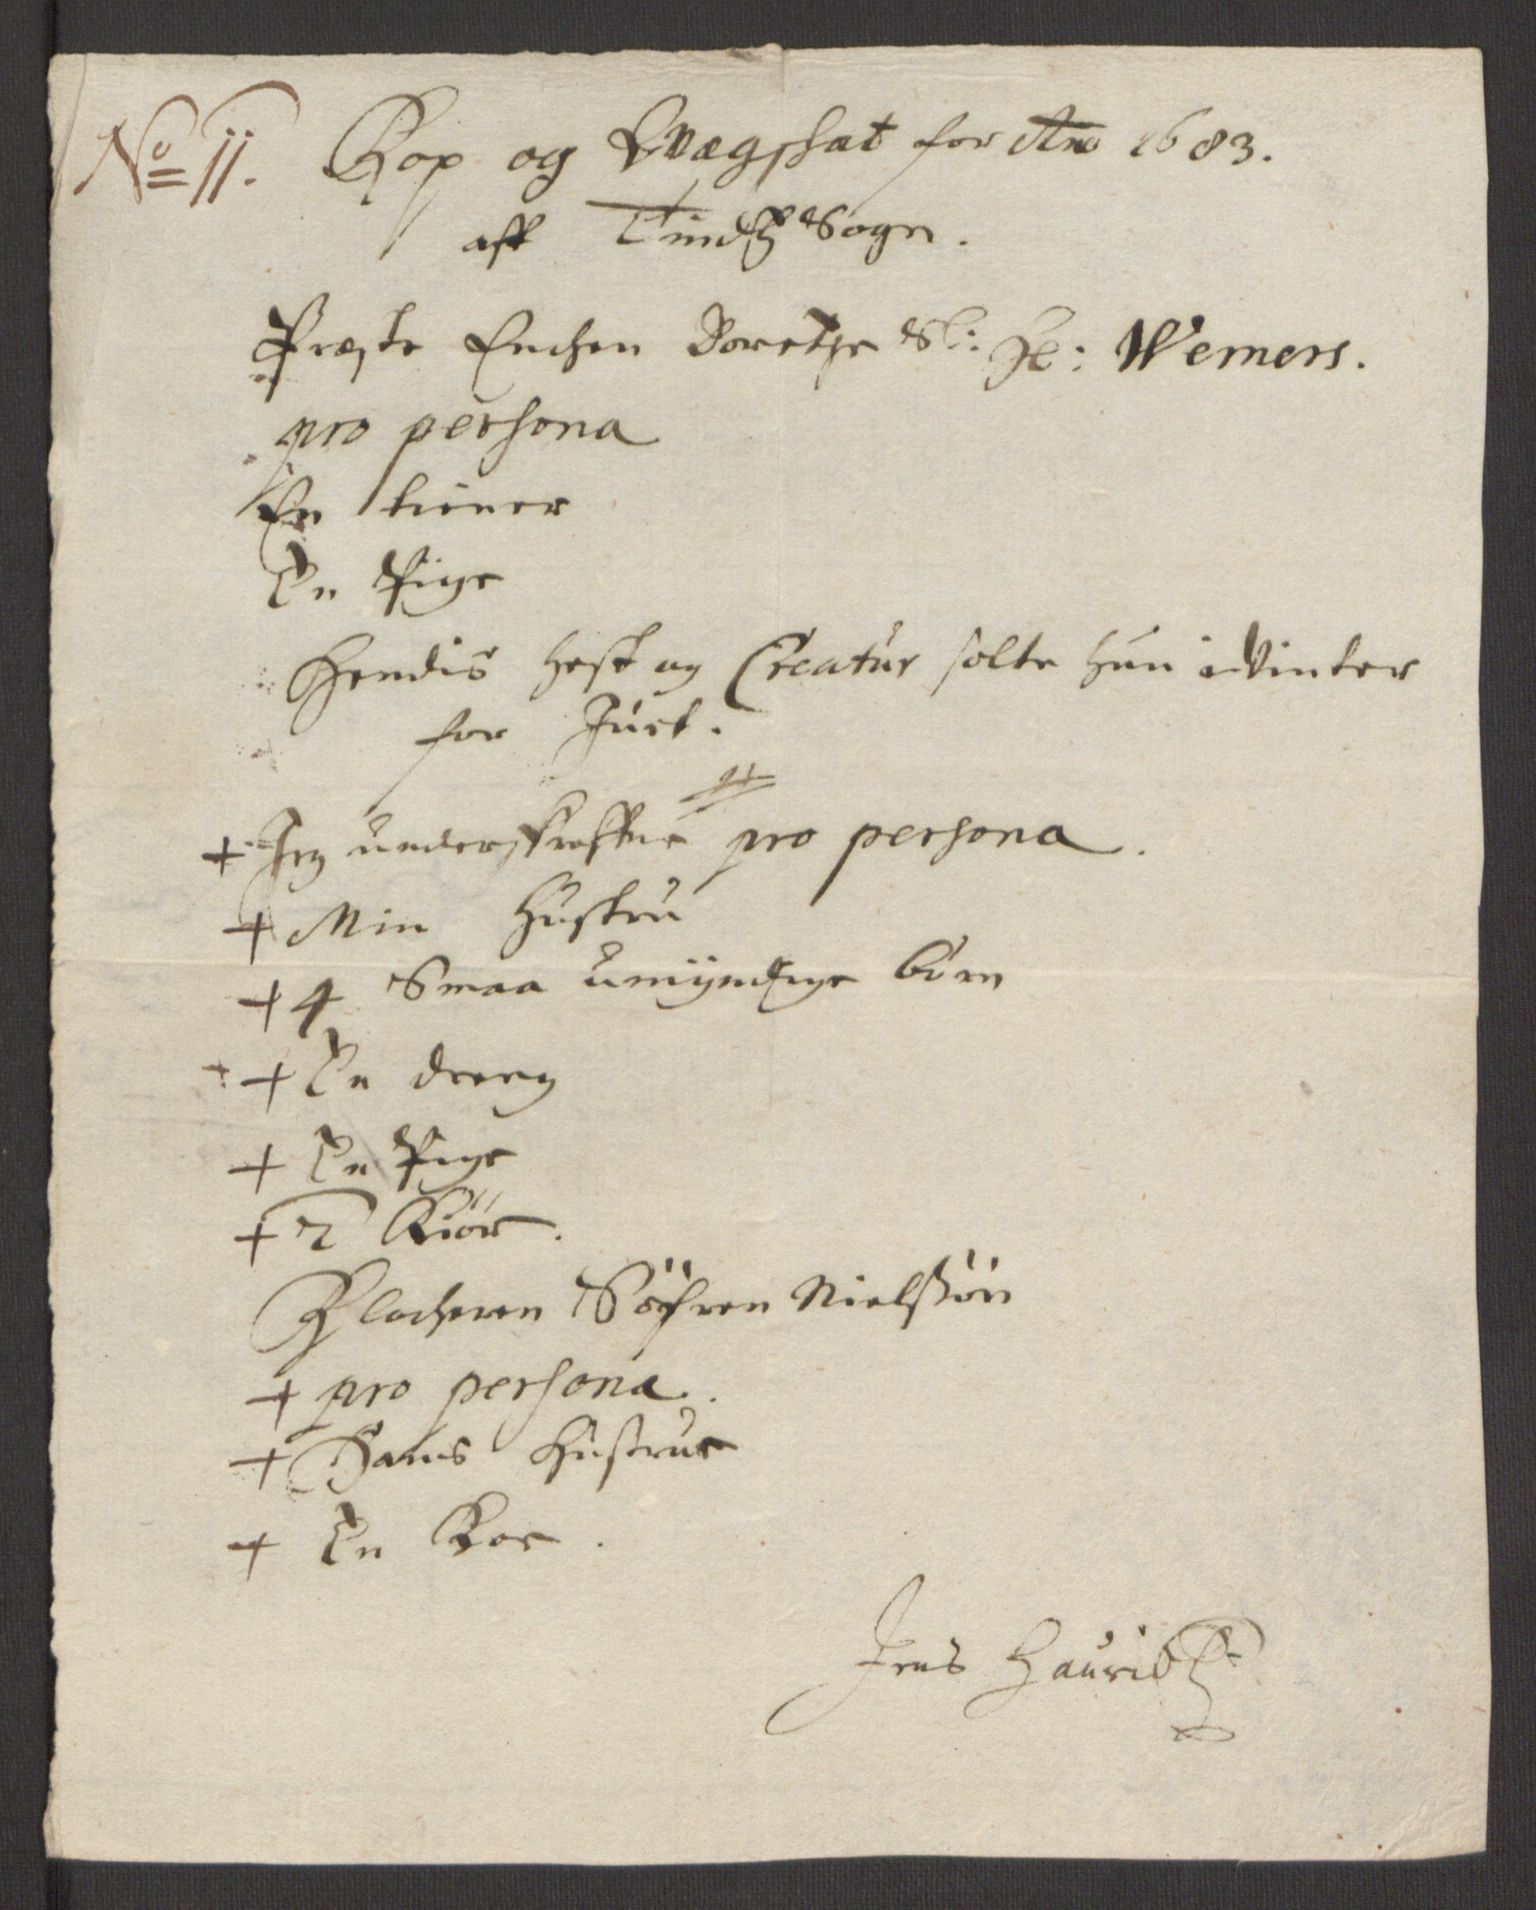 No 11. Kop og Qvægskat for Ano 1683.
aff Tindß Sogn.
Præste Enchen Dorethe Sl: Hr: Werners.
pro persona
En tiener
En Pige
Hendis hest og Creatur solte hun i Vinter
for Juel.
+ Jeg underskreffne pro persona.
+ Min Hustru
+ 4 Smaa umÿndige børn
+ En dreng
+ En Pige
+ 2 Kiør.
Klocheren Søfren Nielssøn
+ pro persona.
+ Hans Hustrue
+ En Koe.
Jens Lauridß